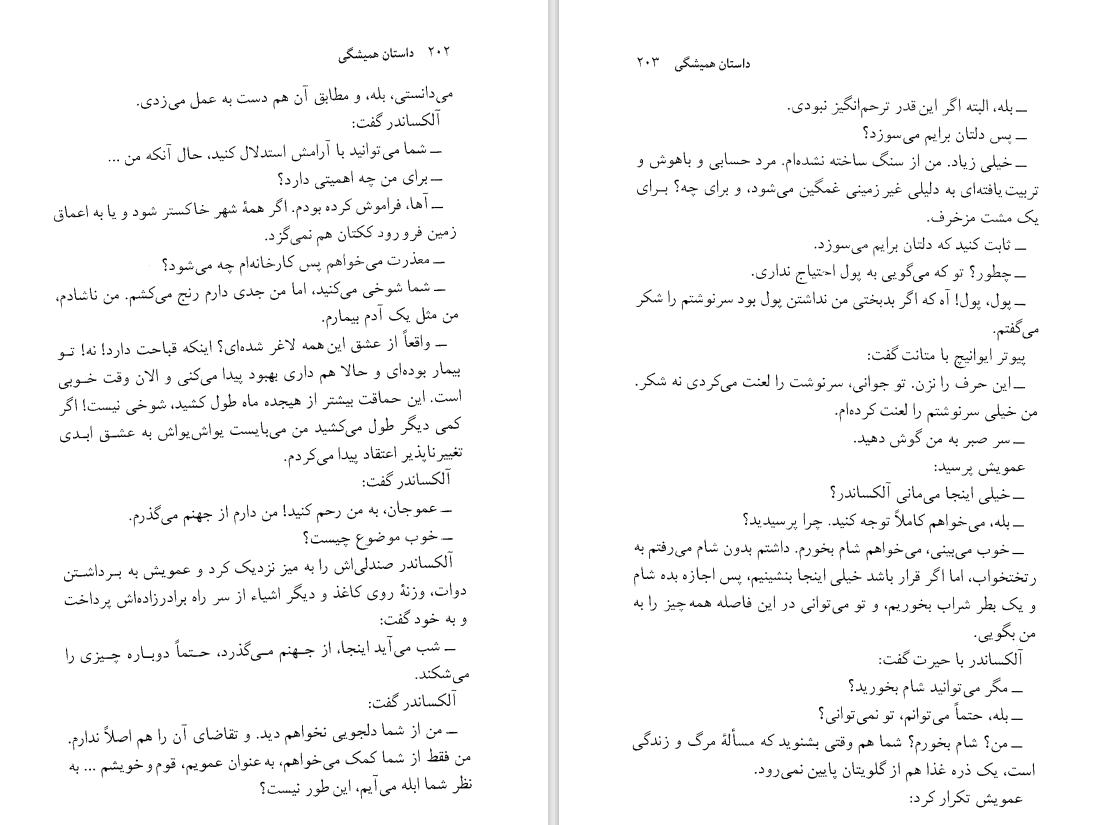 ۲۰۲ داستان همیشگی
می‌دانستی، بله، و مطابق آن هم دست به عمل می‌زدی.
آلکساندر گفت:
ــ شما می‌توانید با آرامش استدلال کنید، حال آنکه من ...
ــ برای من چه اهمیتی دارد؟
ــ آها، فراموش کرده بودم. اگر همهٔ شهر خاکستر شود و یا به اعماق
زمین فرو رود ککتان هم نمی‌گزد.
ــ معذرت می‌خواهم پس کارخانه‌ام چه می‌شود؟
ــ شما شوخی می‌کنید، اما من جدی دارم رنج می‌کشم. من ناشادم،
من مثل یک آدم بیمارم.
ــ واقعاً از عشق این همه لاغر شده‌ای؟ اینکه قباحت دارد! نه! تو
بیمار بوده‌ای و حالا هم داری بهبود پیدا می‌کنی و الان وقت خوبی
است. این حماقت بیشتر از هیجده ماه طول کشید، شوخی نیست! اگر
کمی دیگر طول می‌کشید من می‌بایست یواش‌یواش به عشق ابدی
تغییرناپذیر اعتقاد پیدا می‌کردم.
آلکساندر گفت:
ــ عموجان، به من رحم کنید! من دارم از جهنم می‌گذرم.
ــ خوب موضوع چیست؟
آلکساندر صندلی‌اش را به میز نزدیک کرد و عمویش به برداشتن
دوات، وزنهٔ روی کاغذ و دیگر اشیاء از سر راه برادرزاده‌اش پرداخت
و به خود گفت:
ــ شب می‌آید اینجا، از جهنم می‌گذرد، حتماً دوباره چیزی را
می‌شکند.
آلکساندر گفت:
ــ من از شما دلجویی نخواهم دید. و تقاضای آن را هم اصلاً ندارم.
من فقط از شما کمک می‌خواهم، به عنوان عمویم، قوم و خویشم ... به
نظر شما ابله می‌آیم، این طور نیست؟
داستان همیشگی ۲۰۳
ــ بله، البته اگر این قدر ترحم‌انگیز نبودی.
ــ پس دلتان برایم می‌سوزد؟
ــ خیلی زیاد. من از سنگ ساخته نشده‌ام. مرد حسابی و باهوش و
تربیت یافته‌ای به دلیلی غیر زمینی غمگین می‌شود، و برای چه؟ برای
یک مشت مزخرف.
ــ ثابت کنید که دلتان برایم می‌سوزد.
ــ چطور؟ تو که می‌گویی به پول احتیاج نداری.
ــ پول، پول! آه که اگر بدبختی من نداشتن پول بود سرنوشتم را شکر
می‌گفتم.
پیوتر ایوانیچ با متانت گفت:
ــ این حرف را نزن. تو جوانی، سرنوشت را لعنت می‌کردی نه شکر.
من خیلی سرنوشتم را لعنت کرده‌ام.
ــ سر صبر به من گوش دهید.
عمویش پرسید:
ــ خیلی اینجا می‌مانی آلکساندر؟
ــ بله، می‌خواهم کاملاً توجه کنید. چرا پرسیدید؟
ــ خوب می‌بینی، می‌خواهم شام بخورم. داشتم بدون شام می‌رفتم به
رتختخواب، اما اگر قرار باشد خیلی اینجا بنشینیم، پس اجازه بده شام
و یک بطر شراب بخوریم، و تو می‌توانی در این فاصله همه چیز را به
من بگویی.
آلکساندر با حیرت گفت:
ــ مگر می‌توانید شام بخورید؟
ــ بله، حتماً می‌توانم، تو نمی‌توانی؟
ــ من؟ شام بخورم؟ شما هم وقتی بشنوید که مسألهٔ مرگ و زندگی
است، یک ذره غذا هم از گلویتان پایین نمی‌رود.
عمویش تکرار کرد: